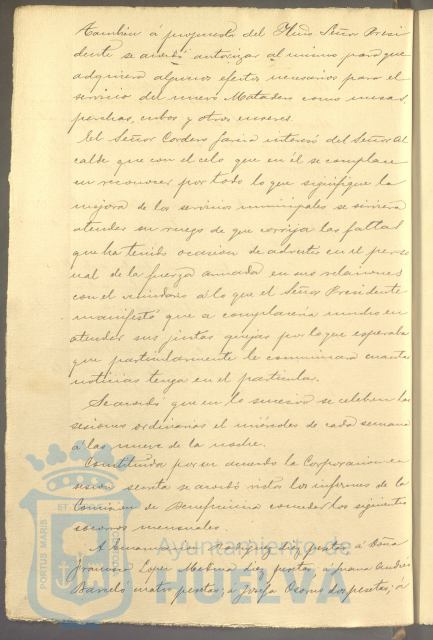 tambien á propuesta del Iltmo Señor Presi
dente se acordó autorizar al mismo para que
adquiera algunos efectos necesarios para el
servicio del nuevo Matadero como mesas,
perchas, cubos y otros enseres.
El Señor Cordero García interesó del Señor Al
calde que con el celo que en él se complace
en reconocer por todo lo que signifique la
mejora de los servicios municipales se sirviera
atender su ruego de que corrija las faltas
que ha tenido ocasion de advertir en el perso
nal de la fuerza armada en sus relaciones
con el vecindario á lo que el Señor Presidente
manifestó que se complaceria mucho en
atender sus justas quejas por lo que esperaba
que particularmente le comunicara cuantas
noticias tenga en el particular.
Se acordó que en lo sucesivo se celebren las
sesiones ordinarias el miércoles de cada semana
á las nueve de la noche.
Constituida por un acuerdo la Corporacion en
sesion secreta se acordó vistos los informes de la
Comision de Beneficencia conceder los siguientes
socorros mensuales.
A Rodriguez diez pesetas, á Doña
Francisca Lopez Medina diez pesetas, á Juana Andrés
Barceló cuatro pesetas; á Josefa Osorno dos pesetas; á
Ayuntamiento de
HUELVA
PORTUS MARIS
ET